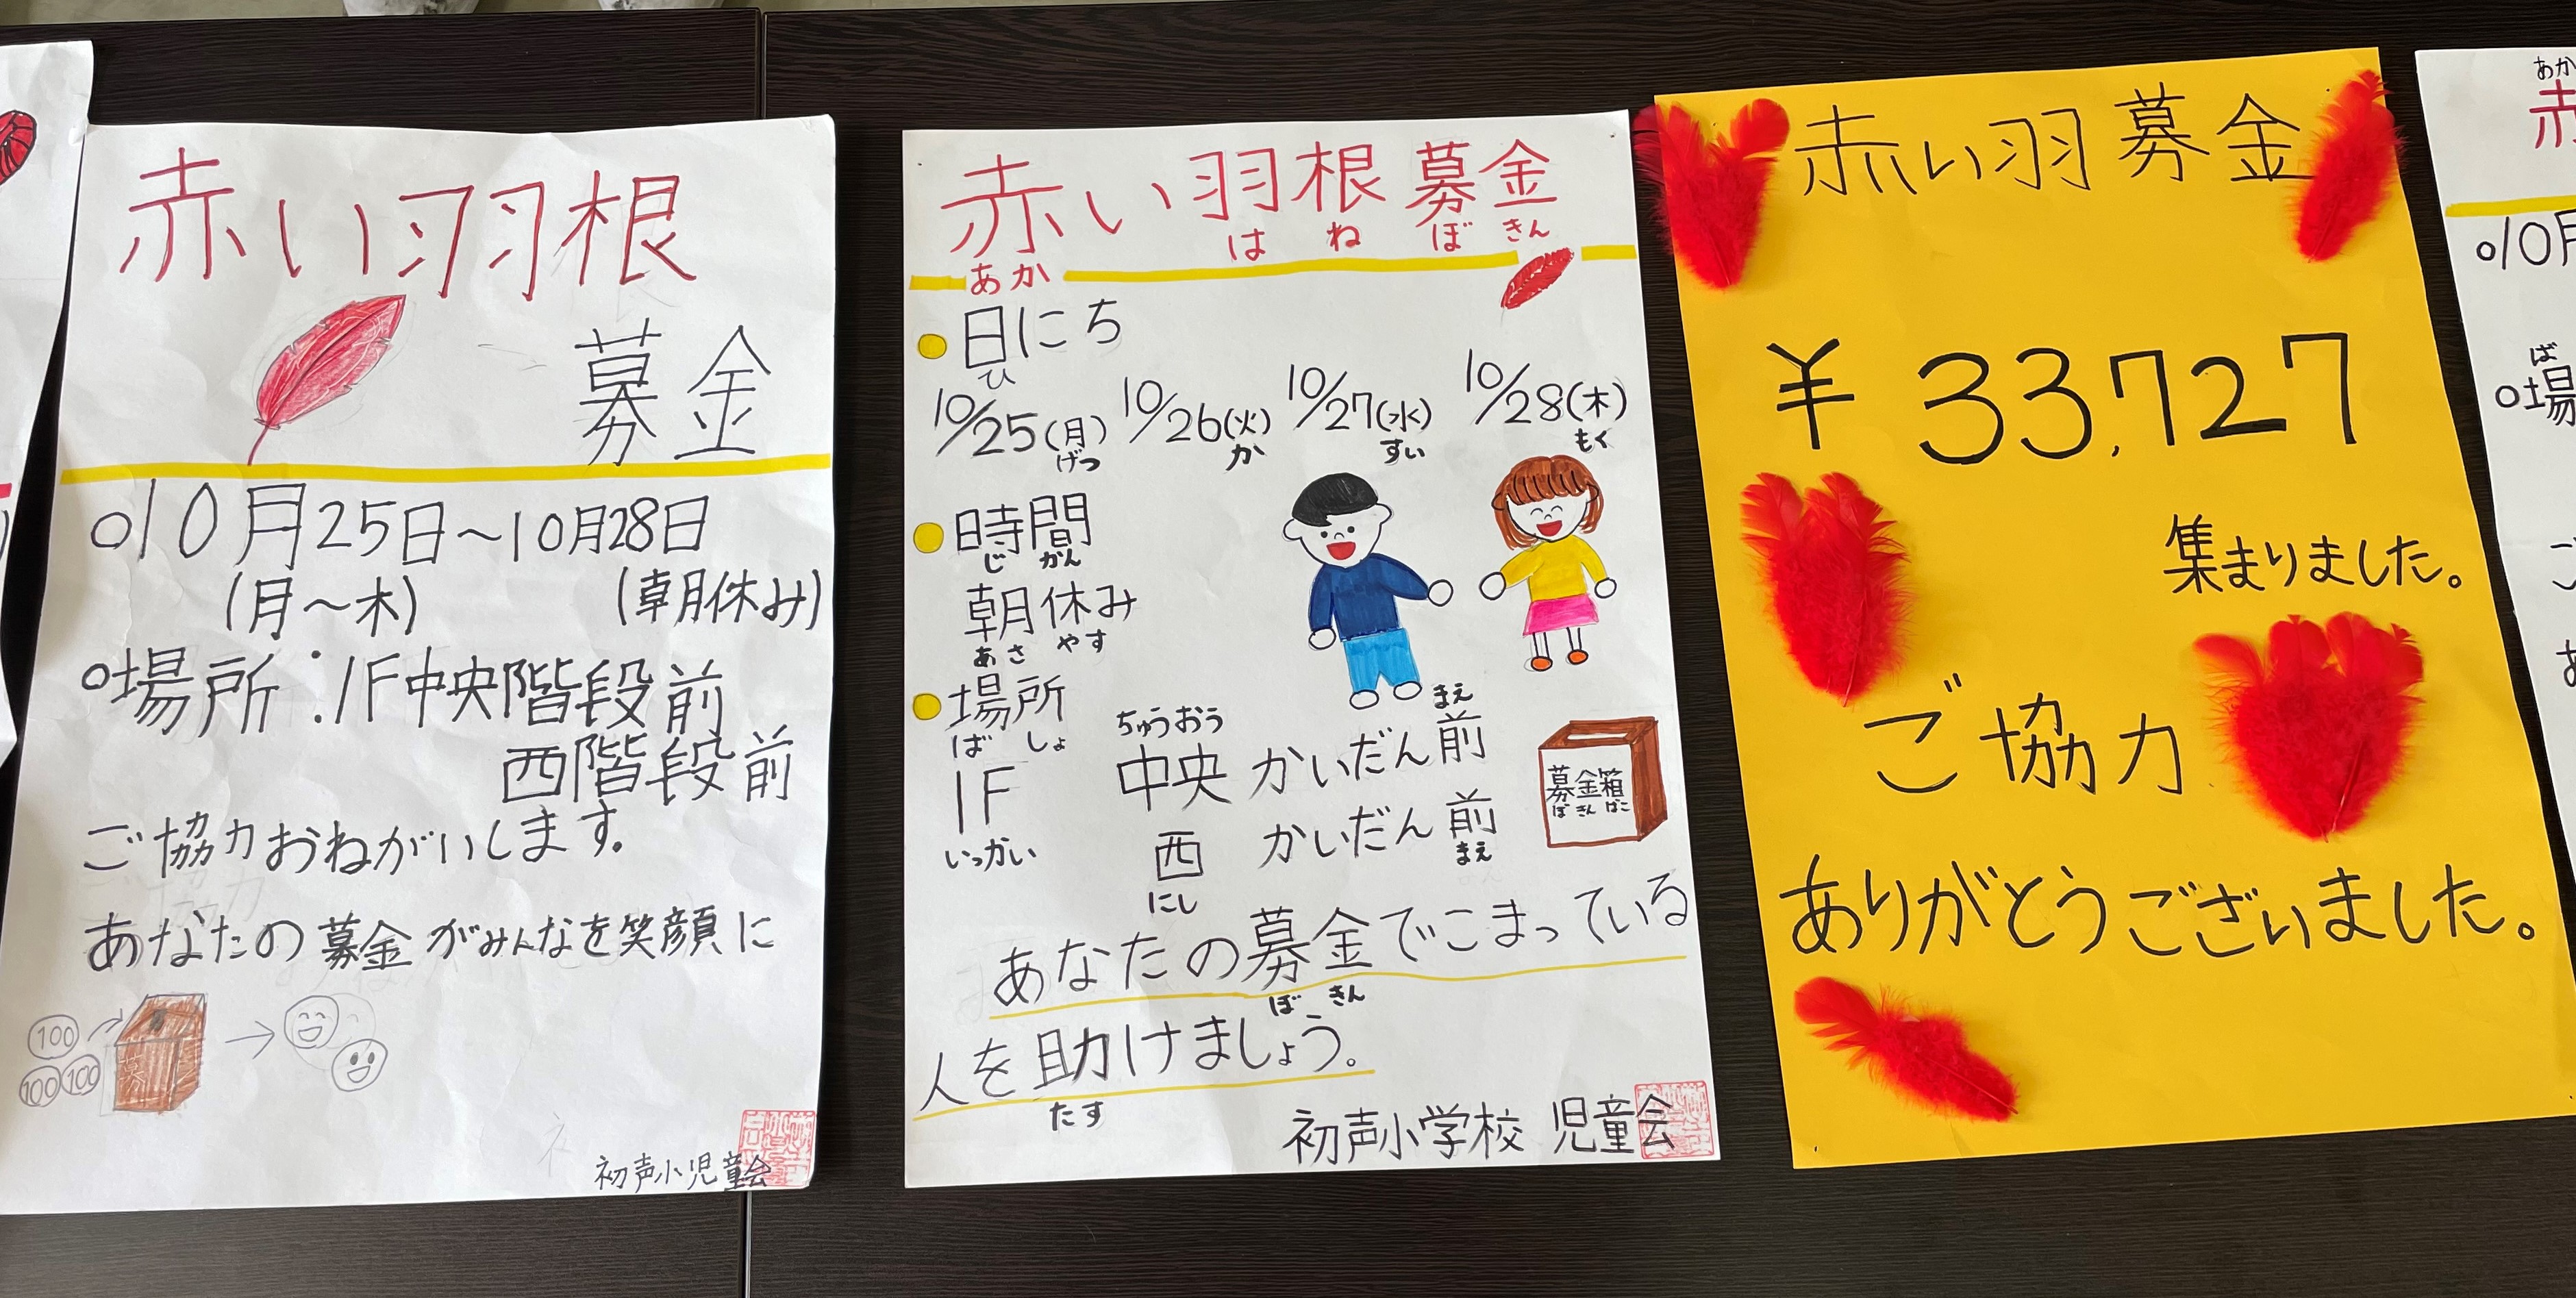 赤い羽根
募金
○10月25日～10月28日
(月～木) (朝休み)
○場所:1F中央階段前
西階段前
ご協力おねがいします。
あなたの募金がみんなを笑顔に
100
100 100
初声小児童会
赤い羽根募金
はねぼきん
あか
日にち
ひ
10/25(月) 10/26(火) 10/27(水) 10/28(木)
げつ か すい もく
時間
じ かん
朝休み
あさ やす
場所
ば しょ
ちゅうおう まえ
1F 中央かいだん前
いっかい
西 かいだん前
にし まえ
募金箱
ぼ きん ばこ
あなたの募金でこまっている
ぼ きん
人を助けましょう。
たす
初声小学校 児童会
赤い羽募金
¥33,727
集まりました。
ご協力
ありがとうございました。
あか
赤
○10月
ば
○場